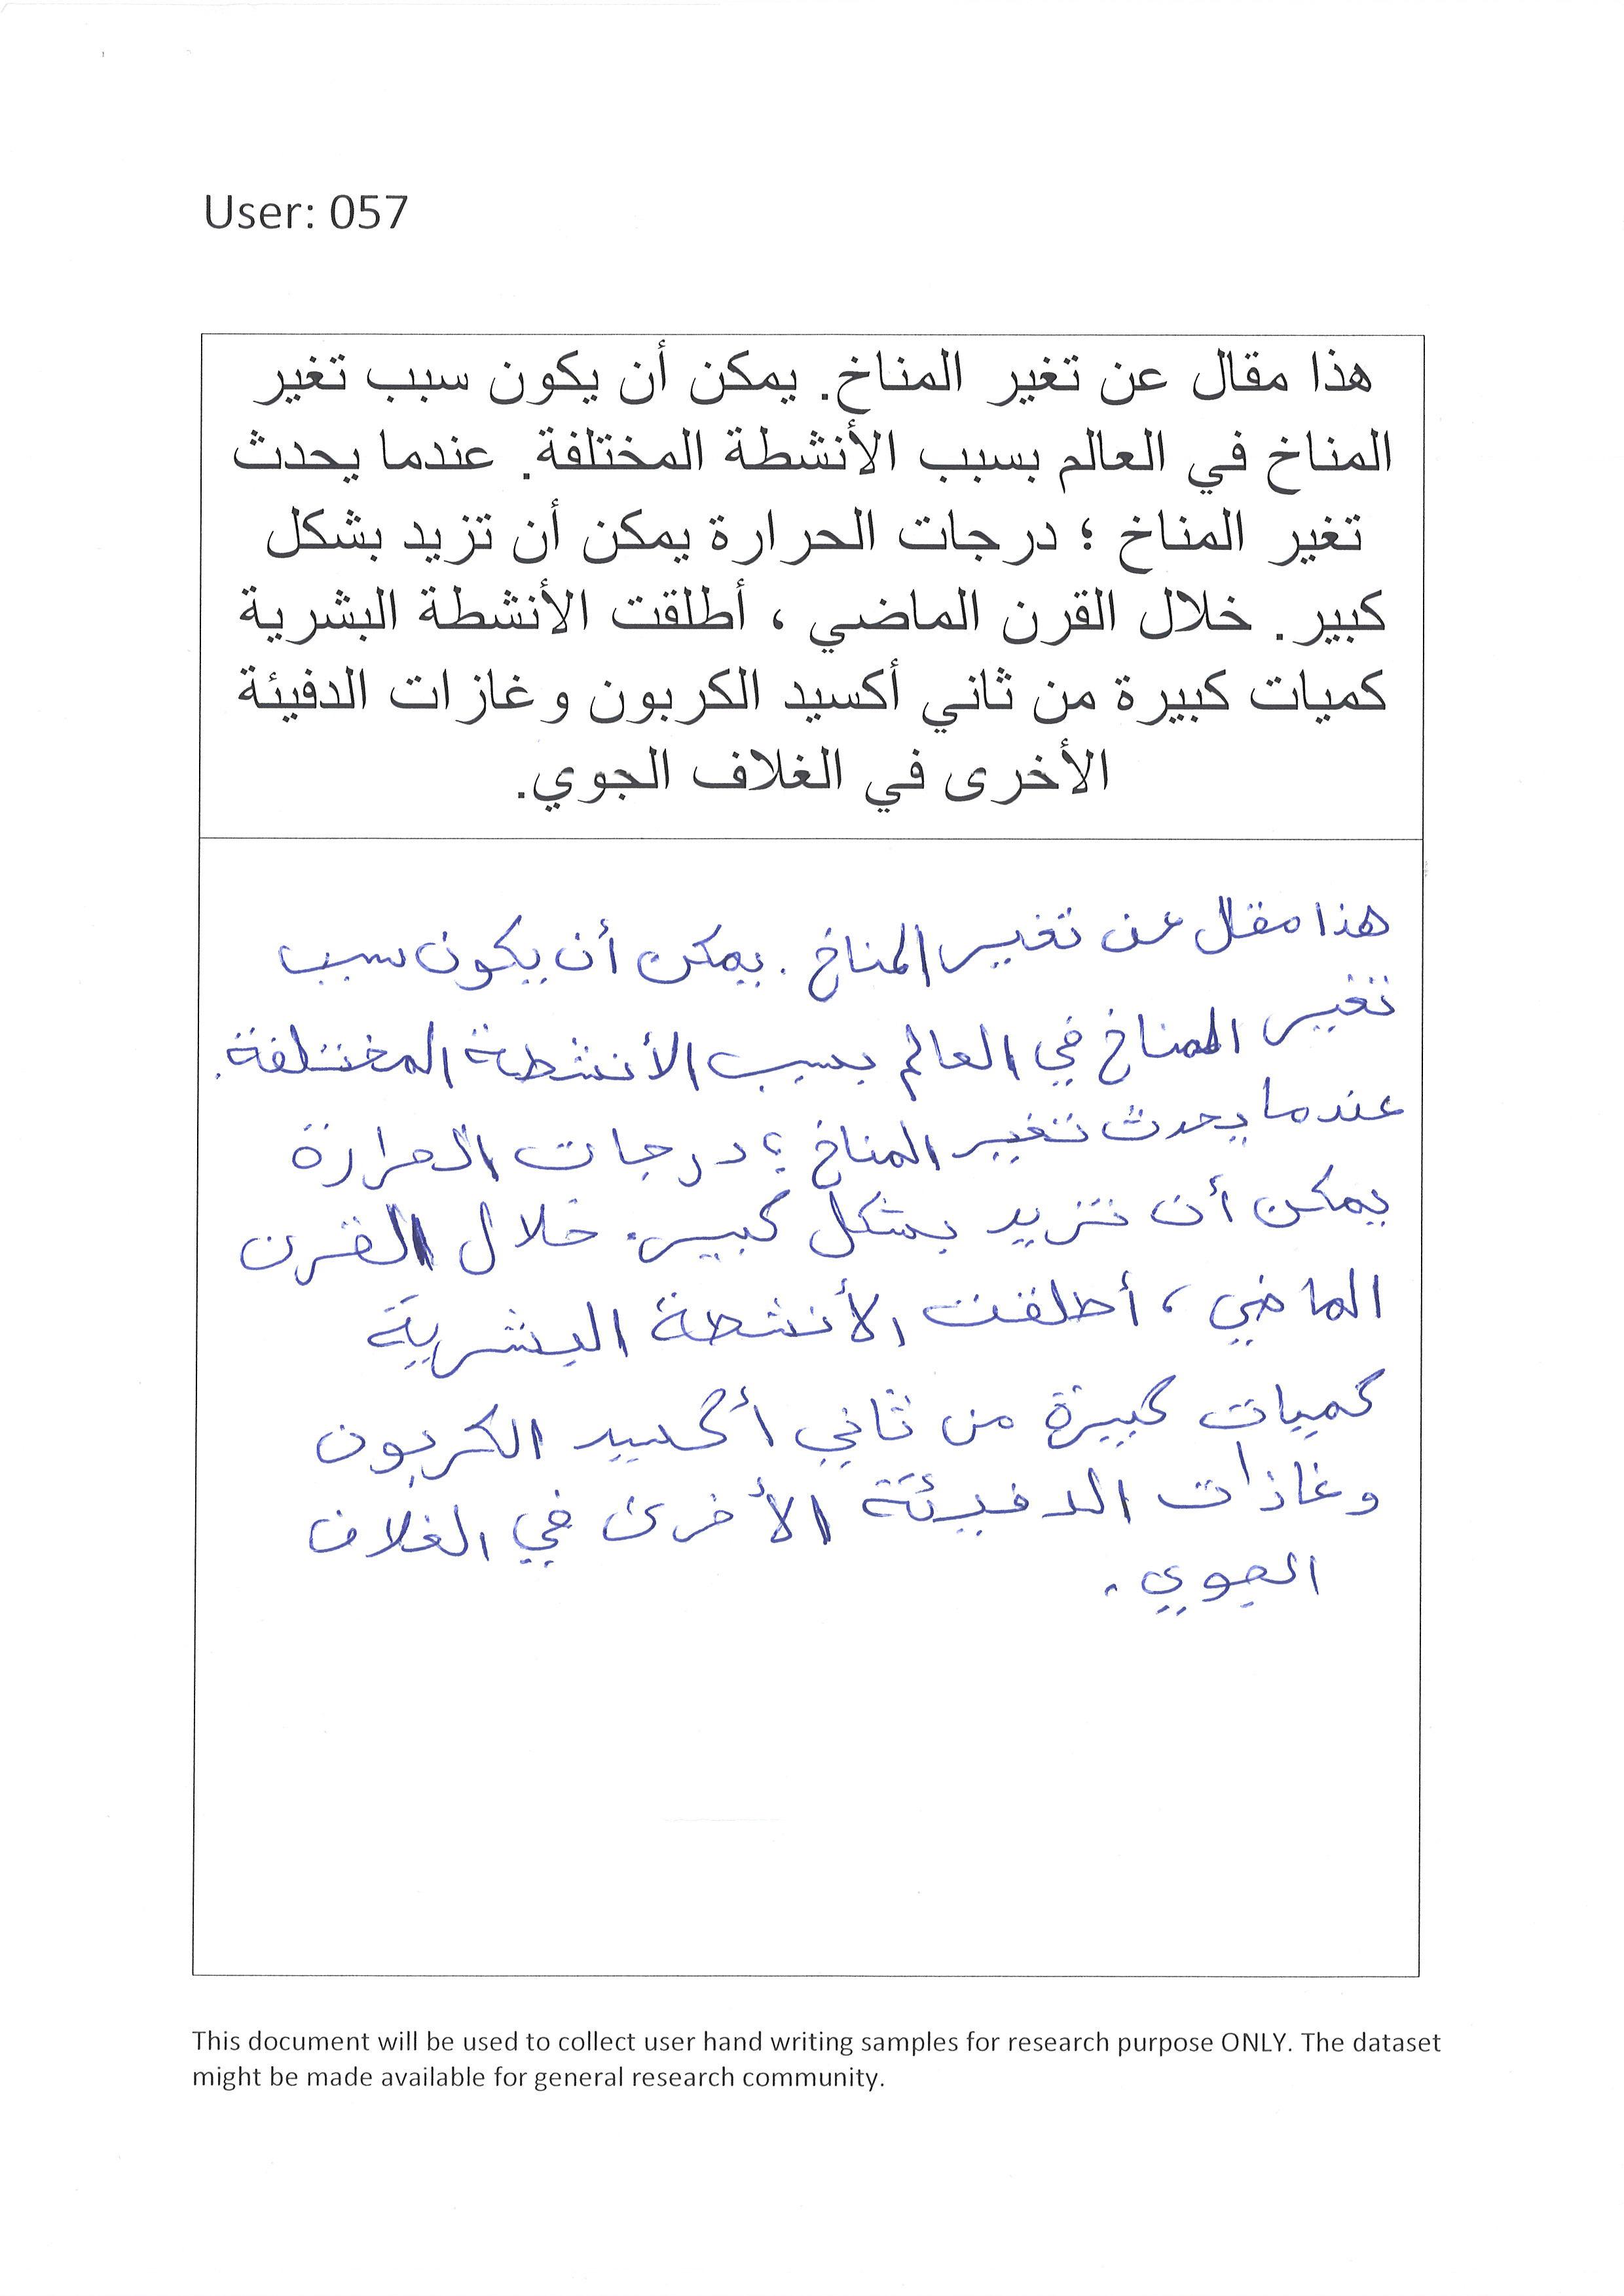 User: 057
هذا مقال عن تغير المناخ. يمكن أن يكون سبب تغير
المناخ في العالم بسبب الأنشطة المختلفة. عندما يحدث
تغير المناخ ؛ درجات الحرارة يمكن أن تزيد بشكل
كبير. خلال القرن الماضي ، أطلقت الأنشطة البشرية
كميات كبيرة من ثاني أكسيد الكربون وغازات الدفيئة
الأخرى في الغلاف الجوي.
هذا مقال عن تغير المناخ. يمكن أن يكون سبب
تغير المناخ في العالم بسبب الأنشطة المختلفة.
عندما يحدث تغير المناخ ؛ درجات الحرارة
يمكن أن تزيد بشكل كبير. خلال القرن
الماضي ، أطلقت الأنشطة البشرية
كميات كبيرة من ثاني أكسيد الكربون
وغازات الدفيئة الأخرى في الغلاف
الجوي.
This document will be used to collect user hand writing samples for research purpose ONLY. The dataset
might be made available for general research community.